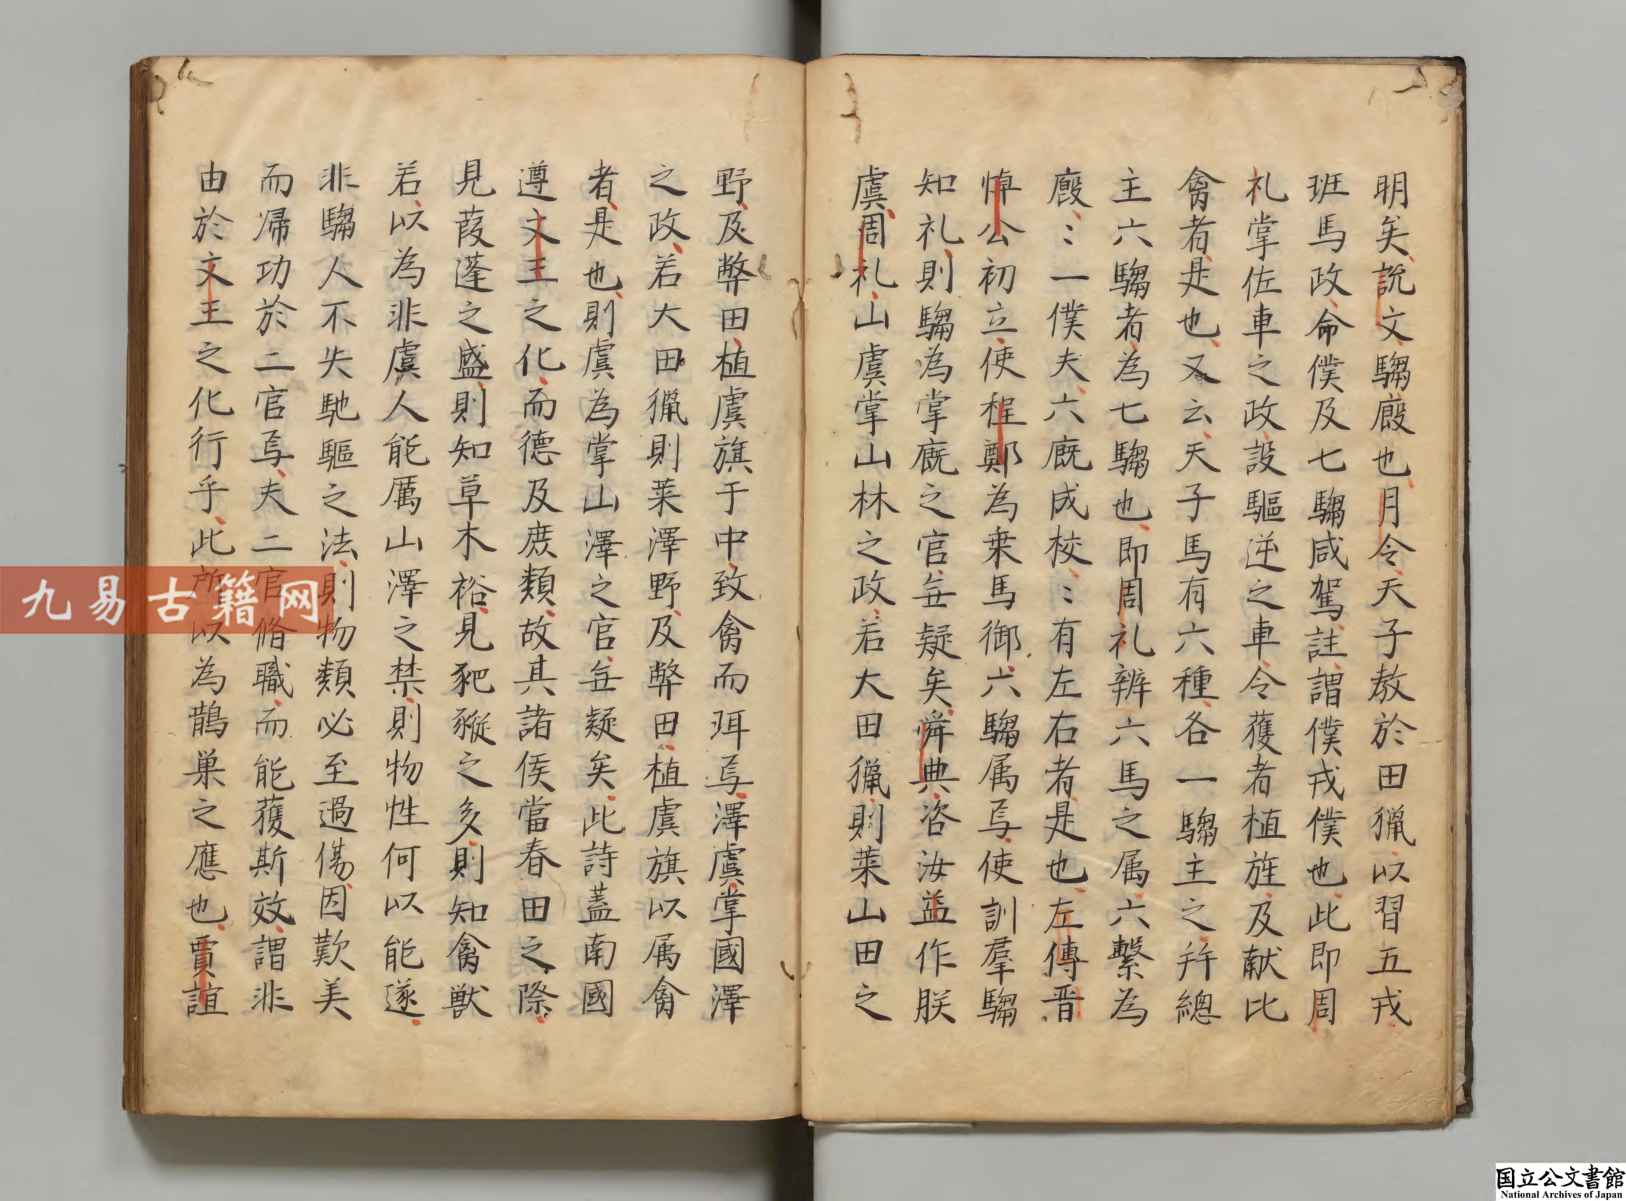 明矣説文騶廄也月令天子教於田猟以習五戎
班馬政命僕及七騶咸駕註謂僕戎僕也此即周
礼掌佐車之政設驅逆之車令獲者植旌及献比
禽者是也又云天子馬有六種各一騶主之并總
主六騶者為七騶也即周礼辨六馬之属六繋為
廄〻一僕夫六厩成校〻有左右者是也左傳晋
悼公初立使程鄭為乗馬御六騶属焉使訓羣騶
知礼則騶為掌厩之官無疑矣舜典咨汝益作朕
虞周礼山虞掌山林之政若大田猟則莱山田之
野及弊田植虞旗于中致禽而珥焉澤虞掌國澤
之政若大田猟則莱澤野及弊田植虞旗以属禽
者是也則虞為掌山澤之官無疑矣此詩蓋南國
遵文王之化而德及庶類故其諸侯當春田之際
見葭蓬之盛則知草木裕見豝豵之多則知禽獣
若以為非虞人能厲山澤之禁則物性何以能遂
非騶人不失馳驅之法則物類必至過傷因歎美
而帰功於二官焉夫二官脩職而能獲斯效謂非
由於文王之化行乎此所以為鵲巣之應也賈誼
九易古籍网
国立公文書館
National Archives of Japan